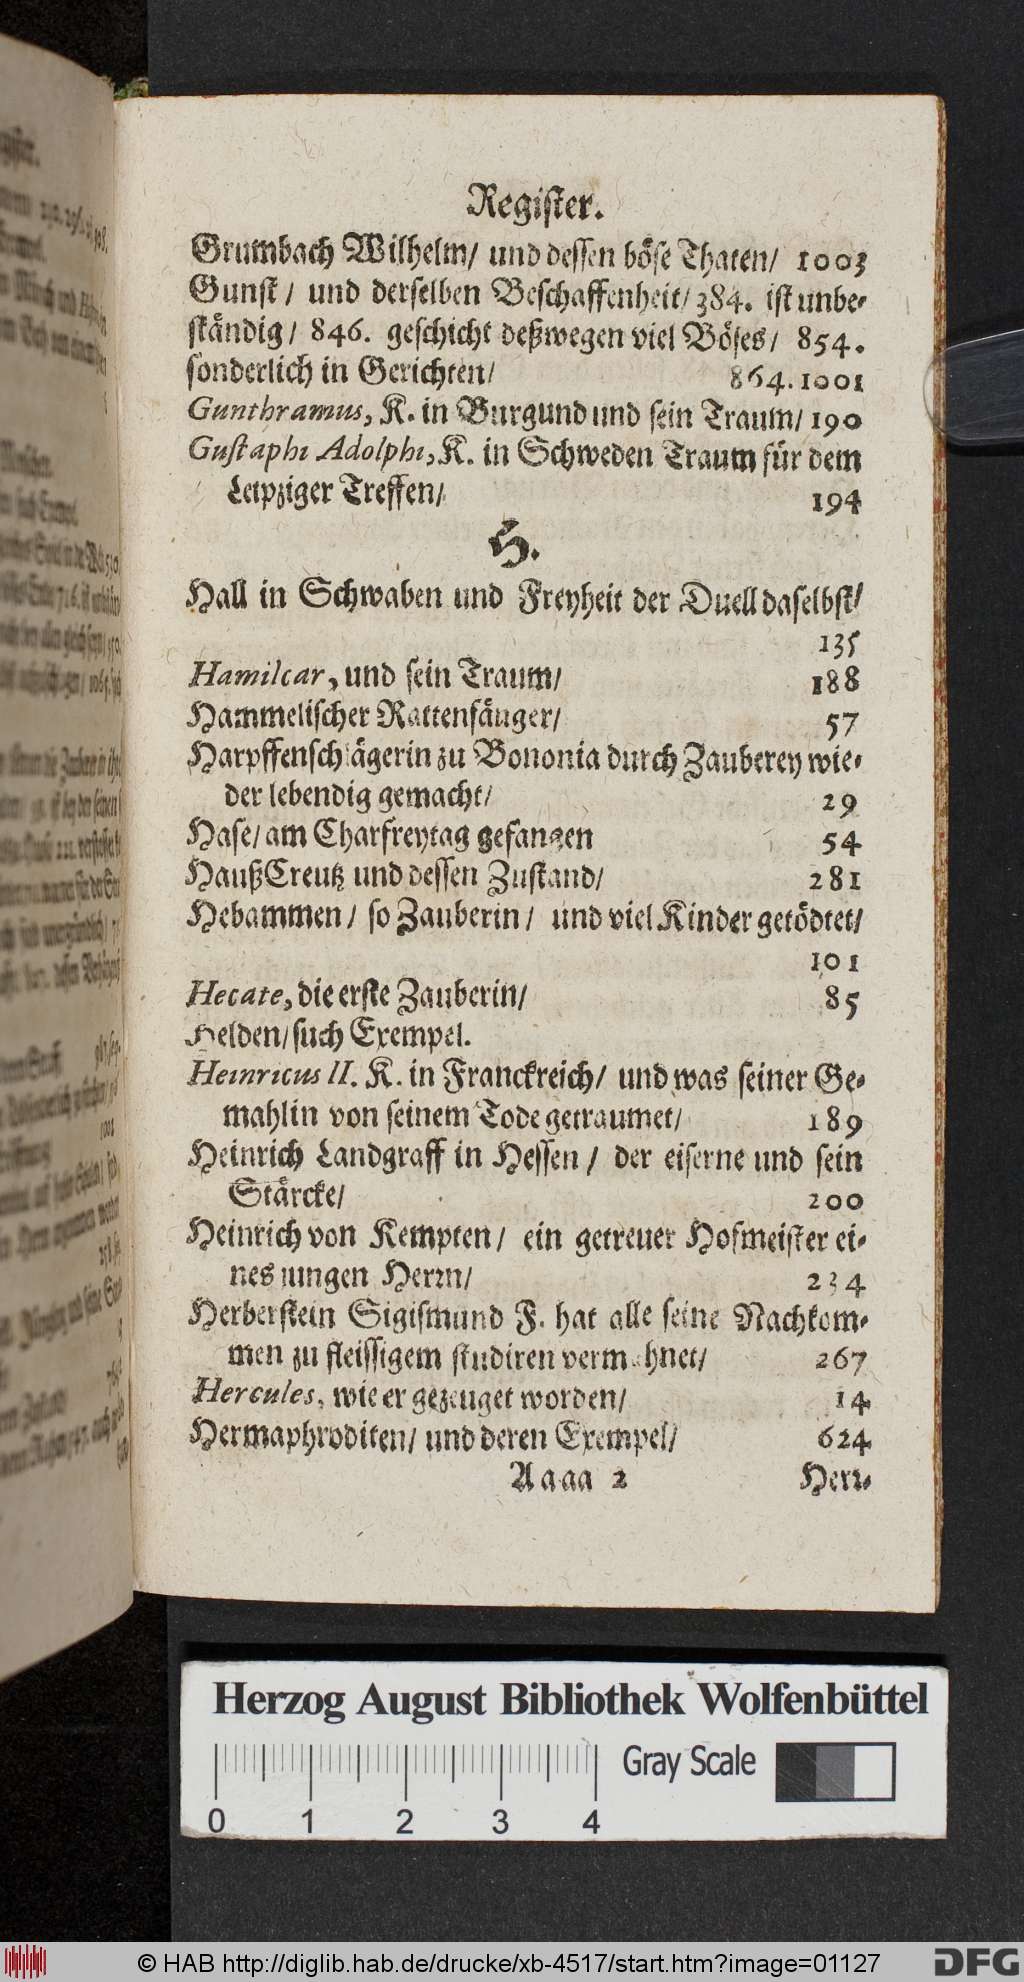 Register.
Grumbach Wilhelm/ und dessen böse Thaten/ 1003
Gunst / und derselben Beschaffenheit/ 384. ist unbe-
ständig / 846. geschicht deßwegen viel Böses / 854.
sonderlich in Gerichten/ 864. 1001
Gunthramus, K. in Burgund und sein Traum/ 190
Gustaphi Adolphi, K. in Schweden Traum für dem
Leipziger Treffen/ 194
H.
Hall in Schwaben und Freyheit der Duell daselbst/
135
Hamilcar, und sein Traum/ 188
Hammelischer Rattenfänger/ 57
Harpffenschlägerin zu Bononia durch Zauberey wie-
der lebendig gemacht/ 29
Hase/ am Charfreytag gefangen 54
HaußCreutz und dessen Zustand/ 281
Hebammen / so Zauberin / und viel Kinder getödtet/
101
Hecate, die erste Zauberin/ 85
Helden/ such Exempel.
Heinricus II. K. in Franckreich/ und was seiner Ge-
mahlin von seinem Tode getraumet/ 189
Heinrich Landgraff in Hessen / der eiserne und sein
Stärcke/ 200
Heinrich von Kempten / ein getreuer Hofmeister ei-
nes jungen Herrn/ 234
Herberstein Sigismund F. hat alle seine Nachkom-
men zu fleissigem studiren vermahnet/ 267
Hercules, wie er gezeuget worden/ 14
Hermaphroditen/ und deren Exempel/ 624
Aaaa 2 Herr-
Herzog August Bibliothek Wolfenbüttel
Gray Scale
0 1 2 3 4
© HAB http://diglib.hab.de/drucke/xb-4517/start.htm?image=01127
DFG